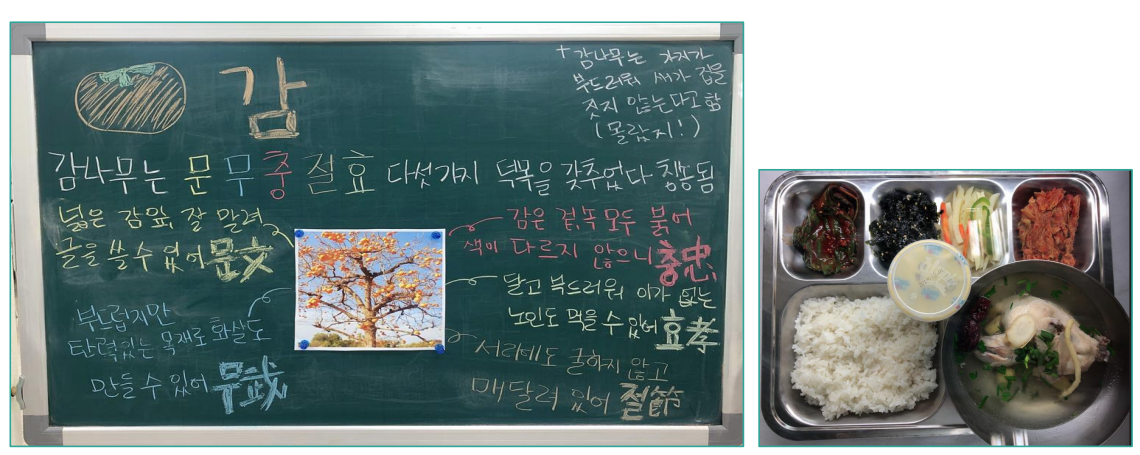 감
+감나무는 가지가
부드러워 새가 집을
짓지 않는다고 함
(몰랐지!)
감나무는 문무충절효 다섯가지 덕목을 갖추었다 칭송됨
넓은 감잎, 잘 말려
글을 쓸 수 있어 문文
부드럽지만
탄력있는 목재로 화살도
만들 수 있어 무武
감은 겉,속 모두 붉어
색이 다르지 않으니 충忠
달고 부드러워 이가 없는
노인도 먹을 수 있어 효孝
서리에도 굴하지 않고
매달려 있어 절節